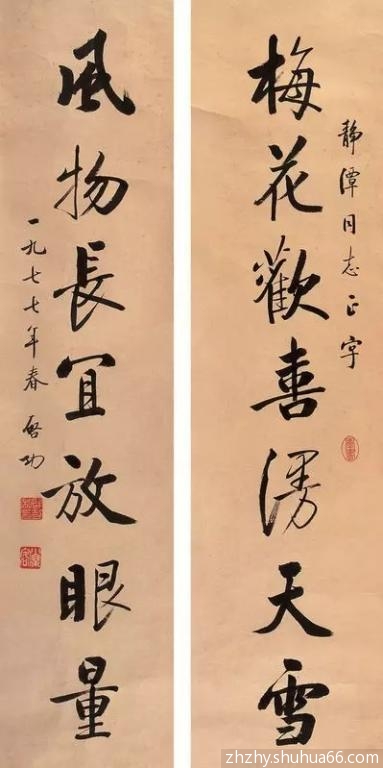 梅花歡喜漫天雪
靜潭同志正字
風物長宜放眼量
一九七七年春 啓功
zhzhyshuhua66.com